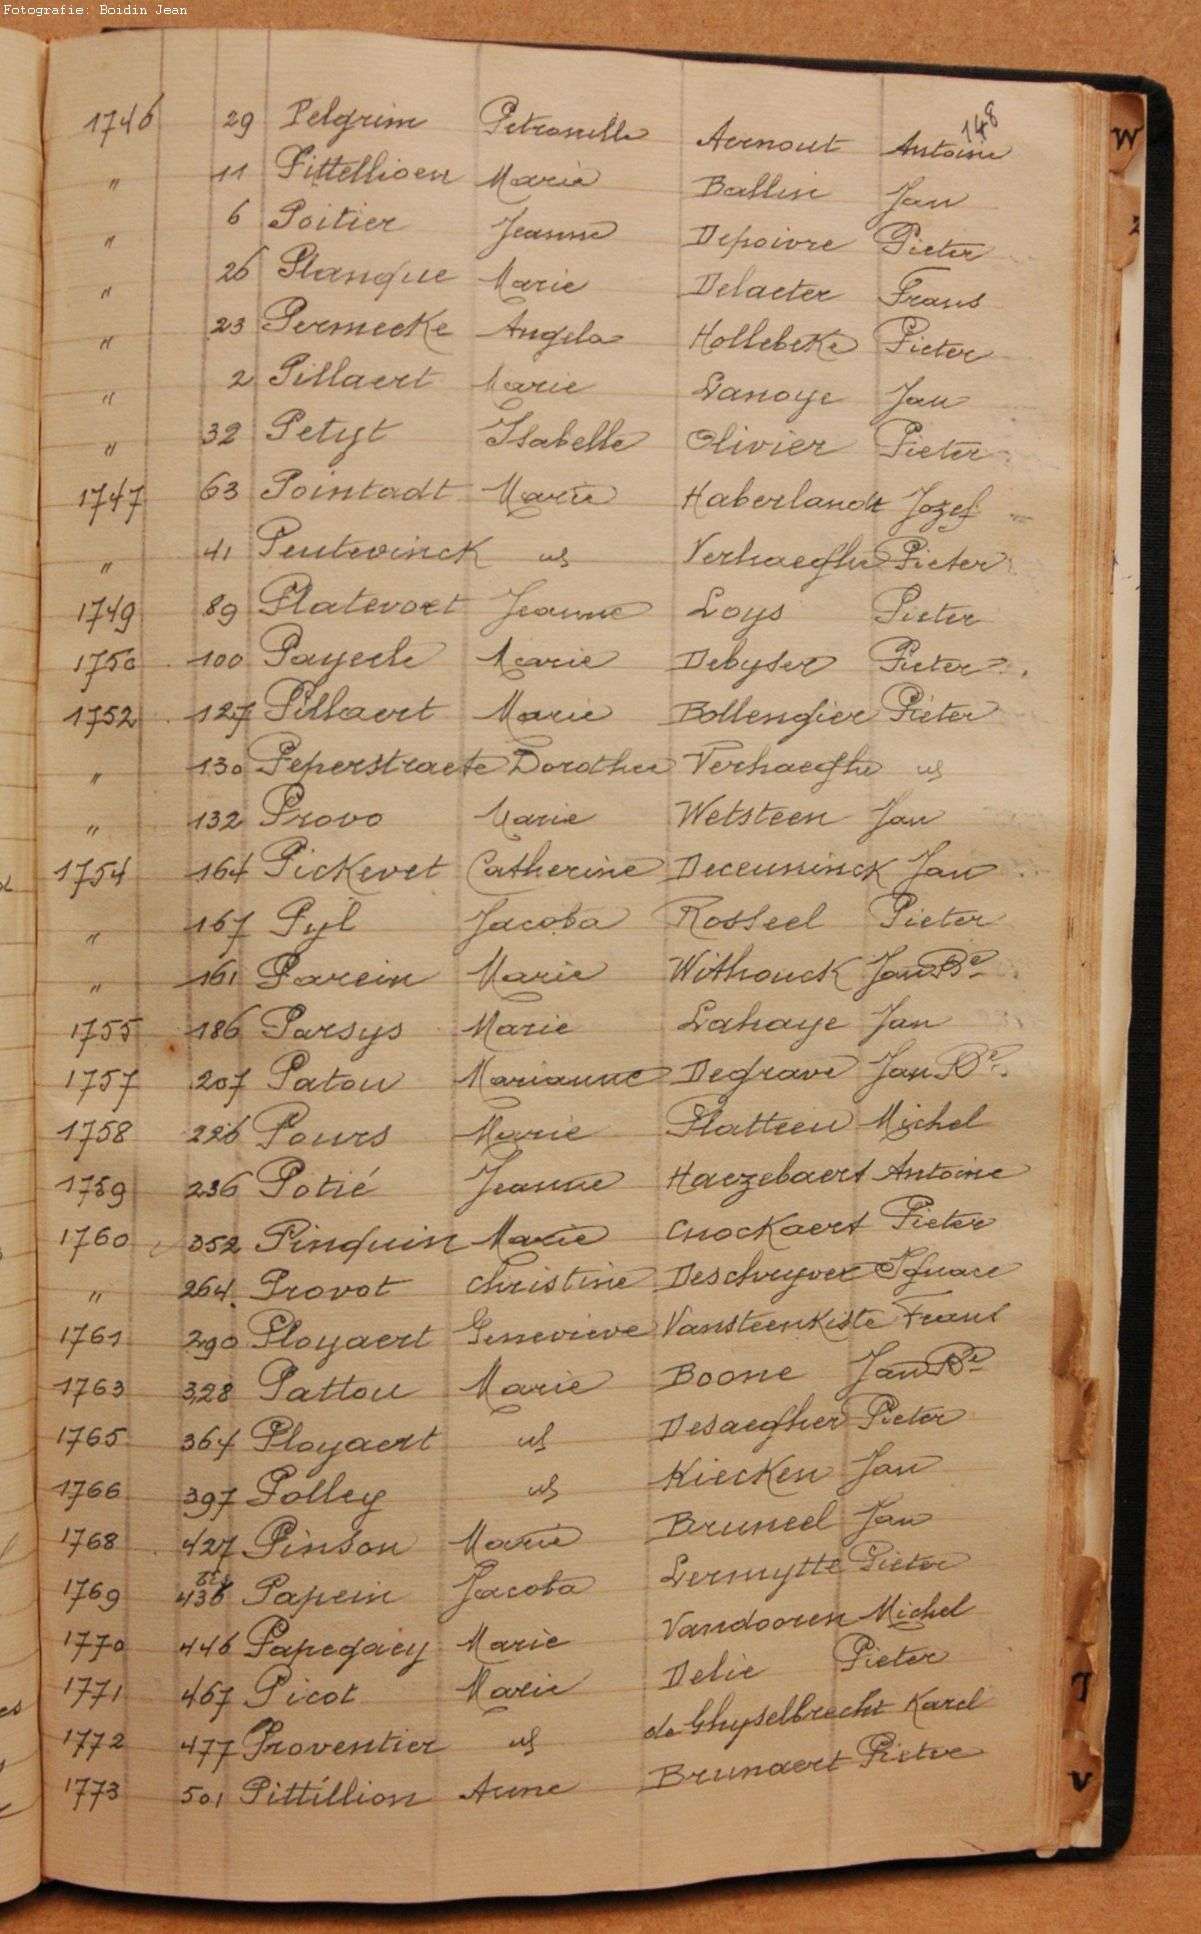 Fotografie: Boidin Jean
148
1746 29 Pelgrim Petronille Aernout Antoine
" 11 Pittellioen Marie Ballin Jan
" 6 Poitier Jeanne Depoivre Pieter
" 26 Planque Marie Delaeter Frans
" 23 Permecke Angela Hollebeke Pieter
" 2 Pillaert Marie Lanoye Jan
" 32 Petyt Isabelle Olivier Pieter
1747 63 Pointadt Marie Haberlandt Jozef
" 41 Peutevinck id Verhaeghe Pieter
1749 89 Platevoet Jeanne Loys Pieter
1750 100 Payecle Marie Debyser Pieter
1752 127 Pillaert Marie Bollengier Pieter
" 130 Peperstraete Dorothee Verhaeghe id
" 132 Provo Marie Wetsteen Jan
1754 164 Pickevet Catherine Deceuninck Jan
" 167 Pyl Jacoba Rosseel Pieter
" 161 Parein Marie Withouck Jan Bte
1755 186 Parsys Marie Lahaye Jan
1757 207 Patou Marianne Degrave Jan Bte
1758 226 Pours Marie Platteeu Michel
1759 236 Potié Jeanne Haezebaert Antoine
1760 352 Pinquin Marie Cnockaert Pieter
" 264 Provot Christine Deschryver Ignace
1761 290 Ployaert Genevieve Vansteenkiste Frans
1763 328 Pattou Marie Boone Jan Bte
1765 364 Ployaert id Desaegher Pieter
1766 397 Polley id Kiecken Jan
1768 427 Pinson Marie Bruneel Jan
1769 436 bis Papein Jacoba Lermytte Pieter
1770 446 Papegaey Marie Vandooren Michel
1771 467 Picot Marie Delie Pieter
1772 477 Proventier id de Ghyselbrecht Karel
1773 501 Pittillion Anne Brunaert Pieter
W
T
V